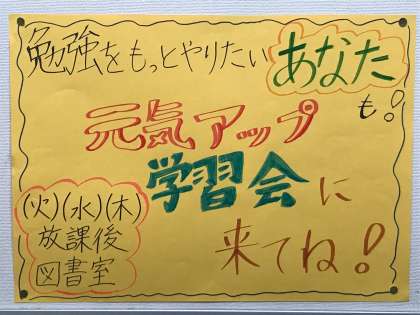 勉強をもっとやりたいあなた
も!
元気アップ
学習会に
来てね!
(火)(水)(木)
放課後
図書室